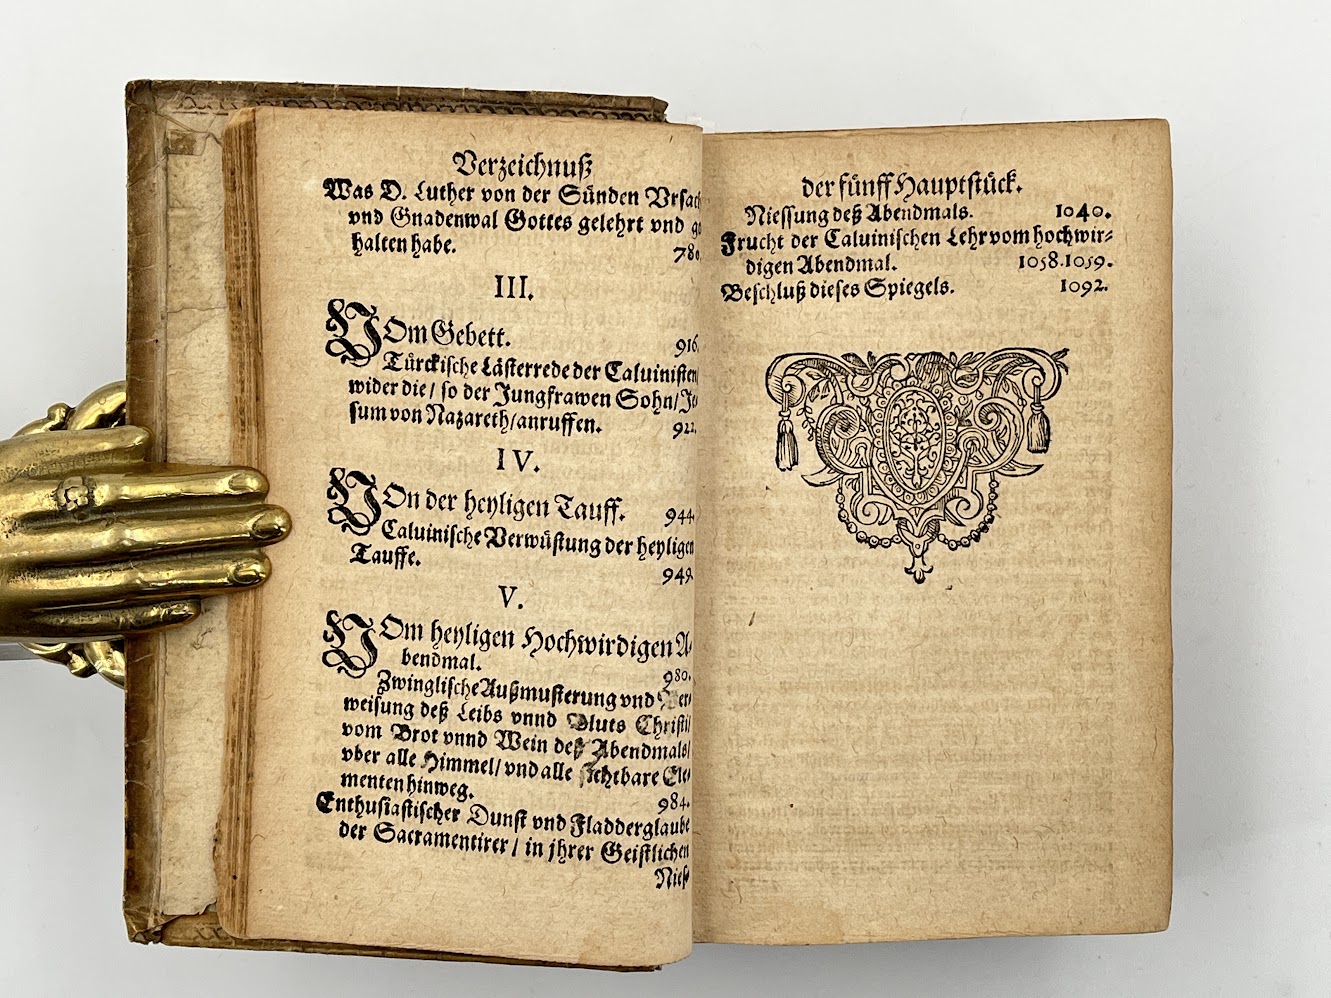 Verzeichnuß
Was D. Luther von der Sünden Vrsach
vnd Gnadenwal Gottes gelehrt vnd ge
halten habe. 780.
III.
VOm Gebett. 916.
Türckische Lästerrede der Caluinisten
wider die / so der Jungfrawen Sohn / Je-
sum von Nazareth / anruffen. 922.
IV.
VOn der heyligen Tauff. 944.
Caluinische Verwüstung der heyligen
Tauffe. 949.
V.
VOm heyligen Hochwirdigen A-
bendmal. 980.
Zwinglische Außmusterung vnd Ver-
weisung deß Leibs vnnd Bluts Christi /
vom Brot vnnd Wein deß Abendmals /
vber alle Himmel / vnd alle sichtbare Ele-
menten hinweg. 984.
Enthusiastischer Dunst vnd Fladderglaube
der Sacramentirer / in jhrer Geistlichen
Nies-
der fünff Hauptstück.
Niessung deß Abendmals. 1040.
Frucht der Caluinischen Lehr vom hochwir-
digen Abendmal. 1058.1059.
Beschluß dieses Spiegels. 1092.